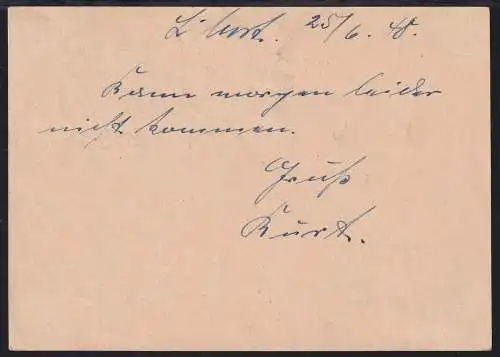 25/6. 48.
Kann morgen leider
nicht kommen.
Gruß
Kurt.